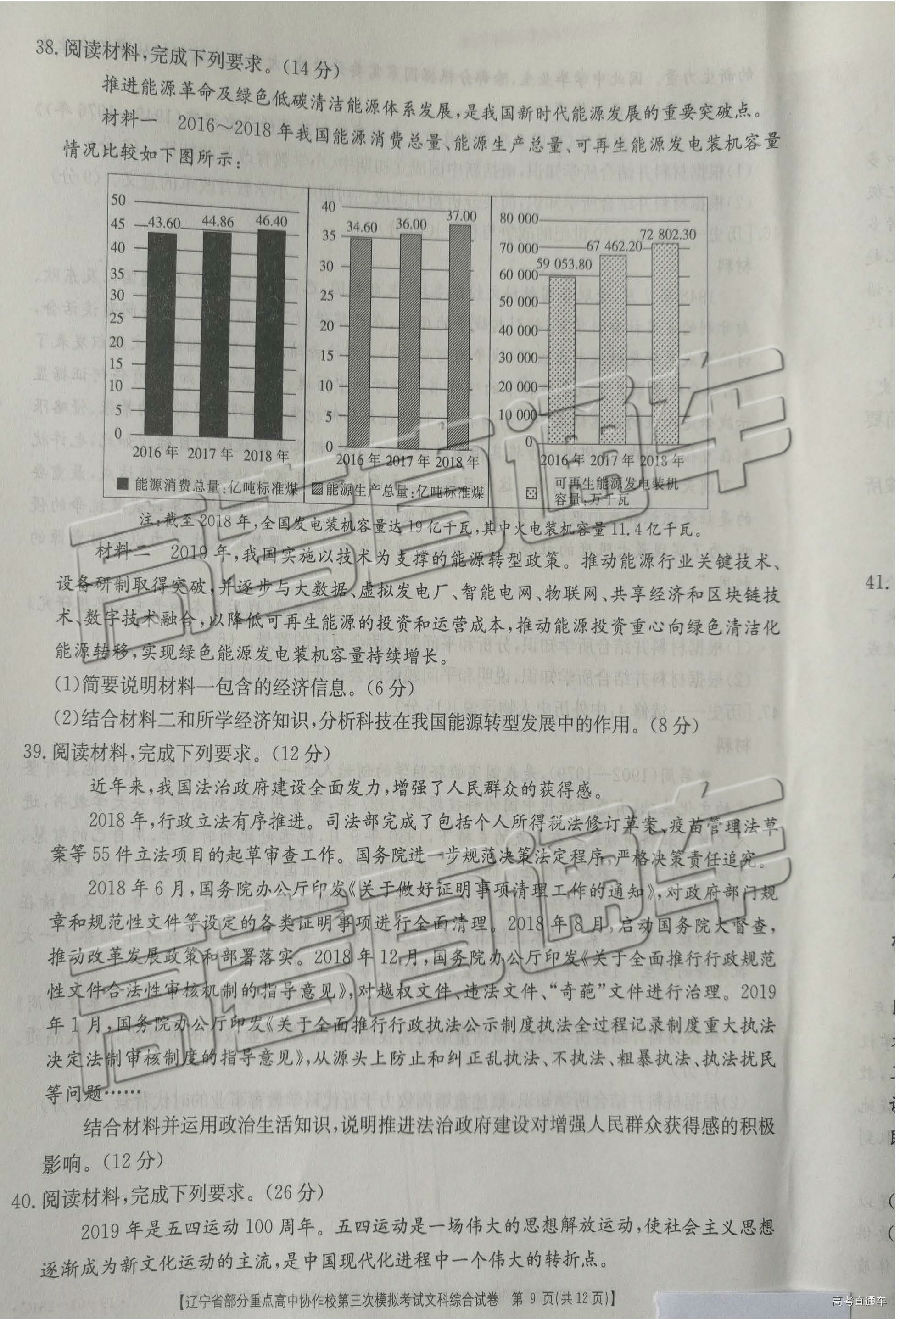 38. 阅读材料,完成下列要求。(14分)
推进能源革命及绿色低碳清洁能源体系发展,是我国新时代能源发展的重要突破点。
材料一 2016～2018年我国能源消费总量、能源生产总量、可再生能源发电装机容量
情况比较如下图所示:
50
45
40
35
30
25
20
15
10
5
0
43.60 44.86 46.40
2016年 2017年 2018年
■能源消费总量:亿吨标准煤
40
35
30
25
20
15
10
5
0
34.60 36.00 37.00
2016年 2017年 2018年
能源生产总量:亿吨标准煤
80 000
70 000
60 000
50 000
40 000
30 000
20 000
10 000
0
59 053.80 67 462.20 72 802.30
2016年 2017年 2018年
可再生能源发电装机
容量:万千瓦
注:截至2018年,全国发电装机容量达19亿千瓦,其中火电装机容量11.4亿千瓦。
材料二 2019年,我国实施以技术为支撑的能源转型政策。推动能源行业关键技术、
设备研制取得突破,并逐步与大数据、虚拟发电厂、智能电网、物联网、共享经济和区块链技
术、数字技术融合,以降低可再生能源的投资和运营成本,推动能源投资重心向绿色清洁化
能源转移,实现绿色能源发电装机容量持续增长。
(1)简要说明材料一包含的经济信息。(6分)
(2)结合材料二和所学经济知识,分析科技在我国能源转型发展中的作用。(8分)
39. 阅读材料,完成下列要求。(12分)
近年来,我国法治政府建设全面发力,增强了人民群众的获得感。
2018年,行政立法有序推进。司法部完成了包括个人所得税法修订草案、疫苗管理法草
案等55件立法项目的起草审查工作。国务院进一步规范决策法定程序,严格决策责任追究。
2018年6月,国务院办公厅印发《关于做好证明事项清理工作的通知》,对政府部门规
章和规范性文件等设定的各类证明事项进行全面清理。2018年8月,启动国务院大督查,
推动改革发展政策和部署落实。2018年12月,国务院办公厅印发《关于全面推行行政规范
性文件合法性审核机制的指导意见》,对越权文件、违法文件、“奇葩”文件进行治理。2019
年1月,国务院办公厅印发《关于全面推行行政执法公示制度执法全过程记录制度重大执法
决定法制审核制度的指导意见》,从源头上防止和纠正乱执法、不执法、粗暴执法、执法扰民
等问题……
结合材料并运用政治生活知识,说明推进法治政府建设对增强人民群众获得感的积极
影响。(12分)
40. 阅读材料,完成下列要求。(26分)
2019年是五四运动100周年。五四运动是一场伟大的思想解放运动,使社会主义思想
逐渐成为新文化运动的主流,是中国现代化进程中一个伟大的转折点。
【辽宁省部分重点高中协作校第三次模拟考试文科综合试卷 第9页(共12页)】
41.
高考直通车
高考直通车
高考直通车